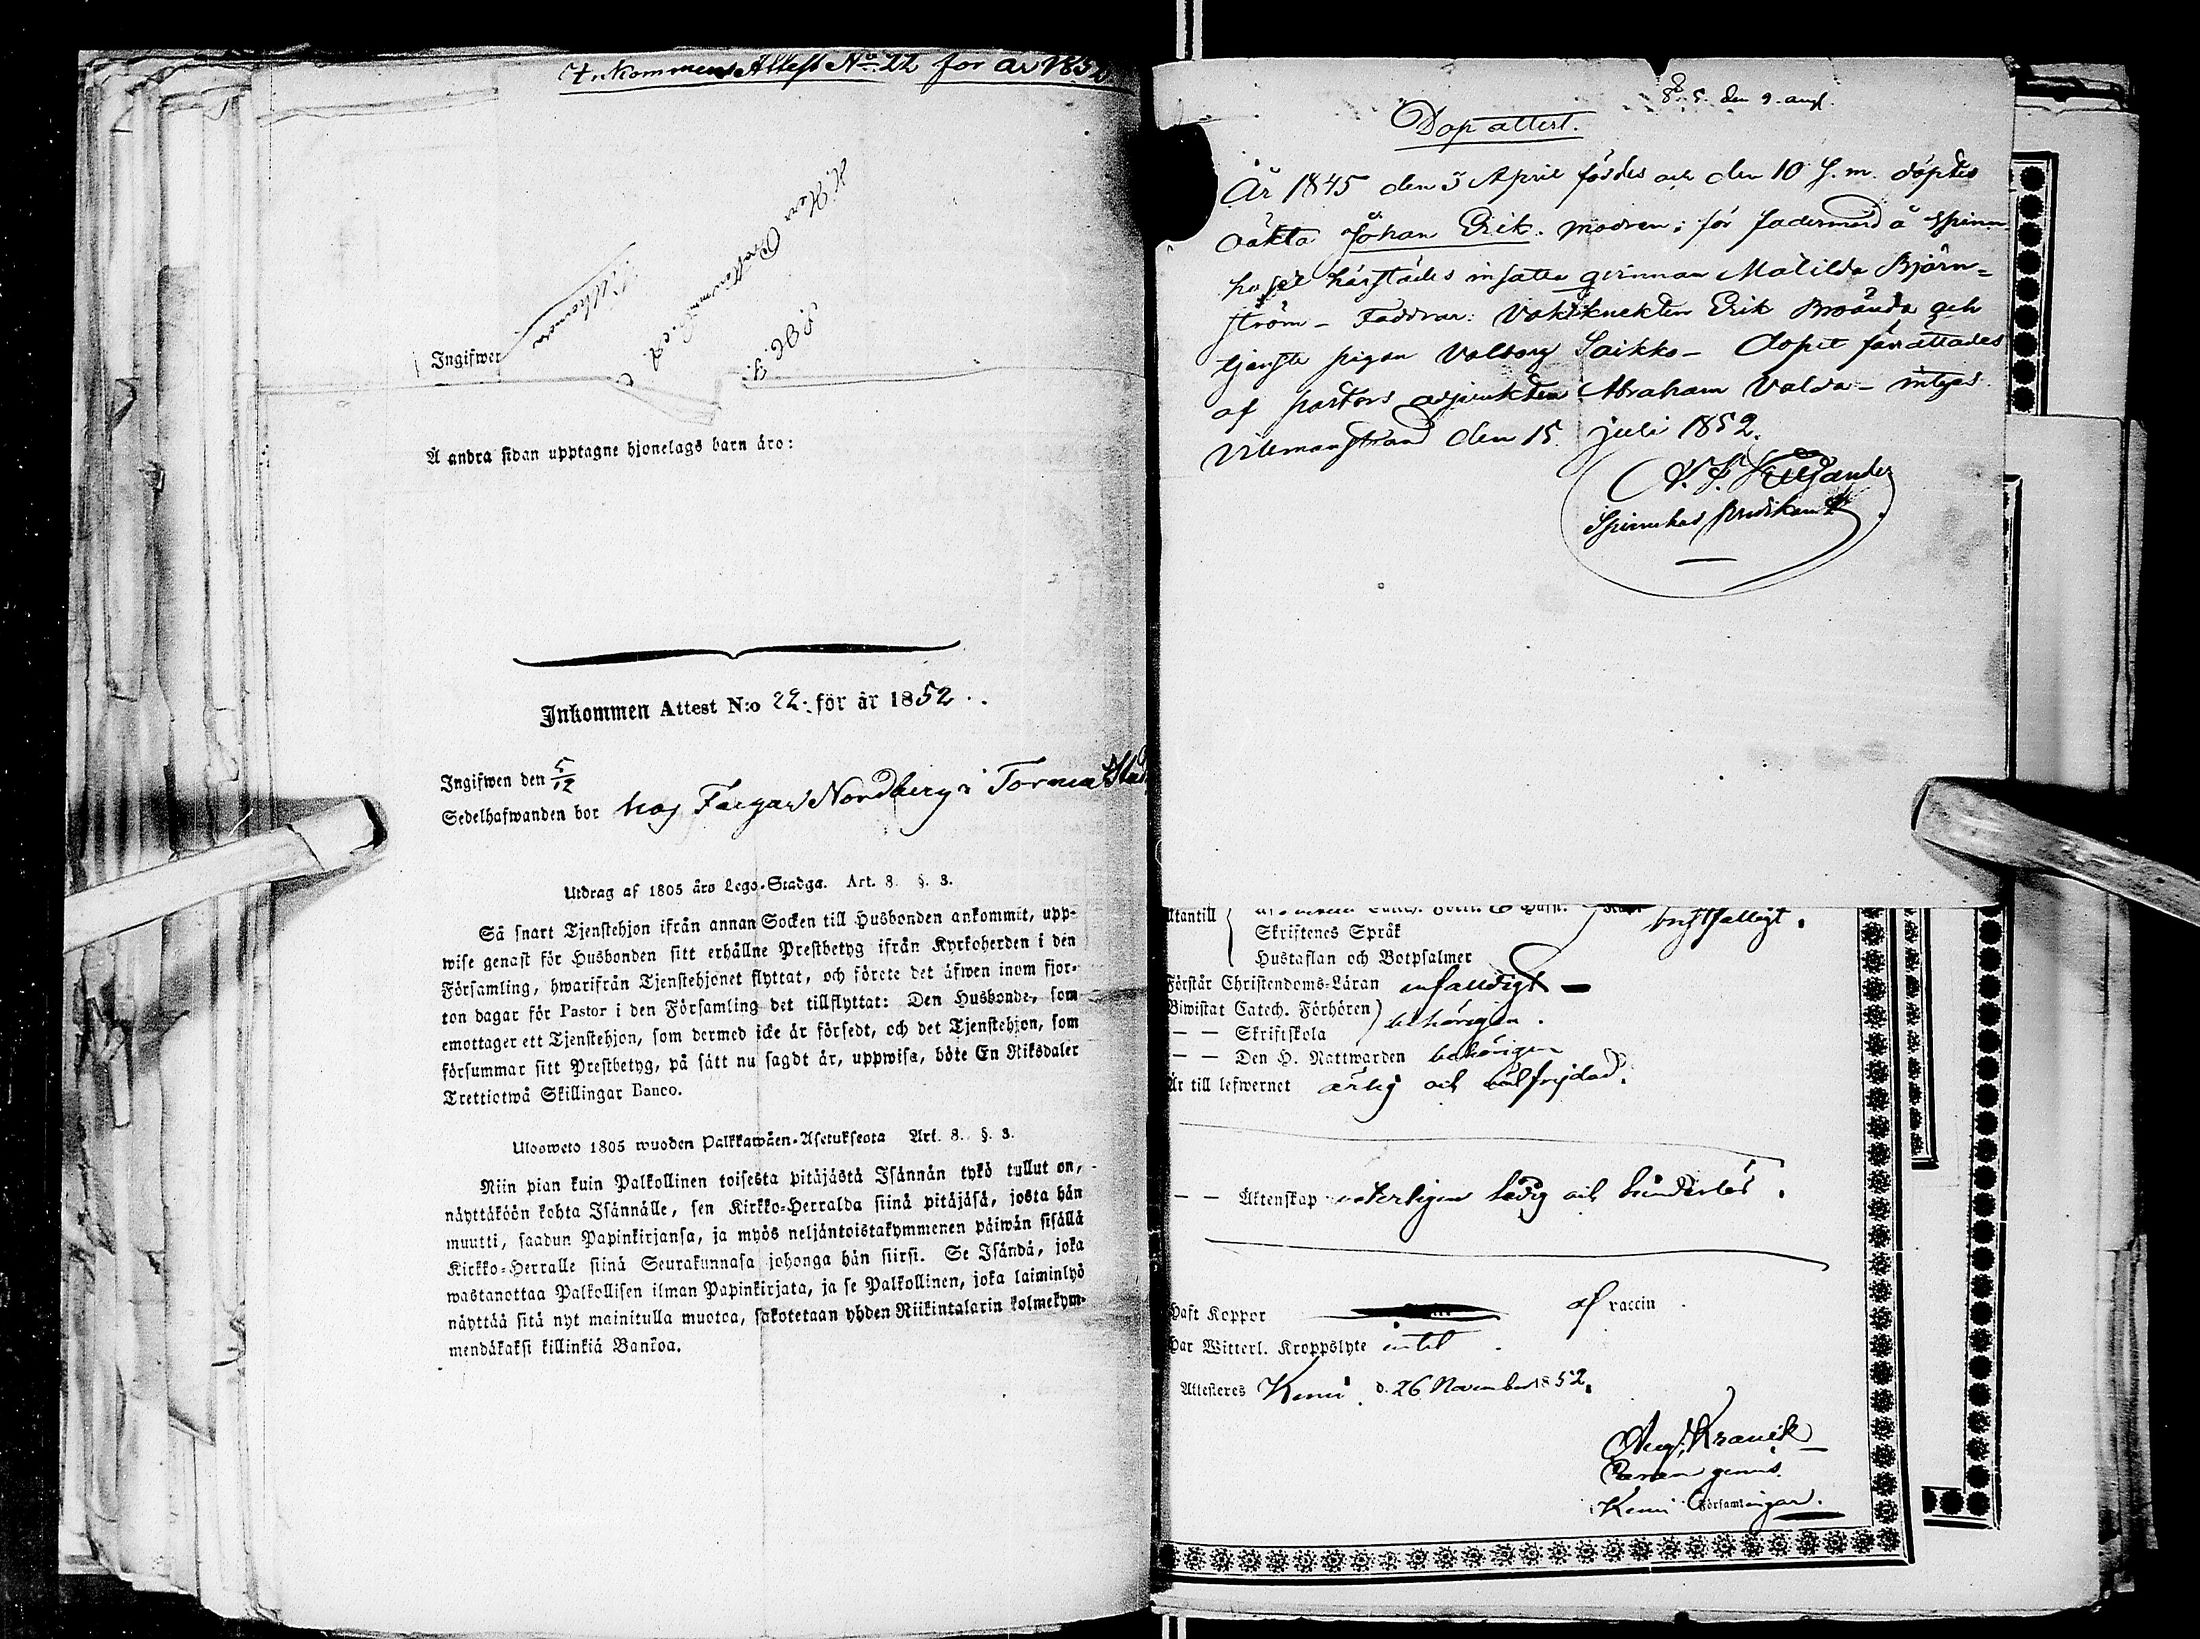 Inkommen Attest No 22 för år 1852
Ingifwen
Å andra sidan upptagne hjonelags barn äro:
Inkommen Attest N:o 22. för år 1852.
Ingifwen den 5/12
Sedelhafwanden bor hos Färgar Nordberg i Torneå Stad
Utdrag af 1805 års Lego-Stadga. Art. 8. §. 3.
Så snart Tjenstehjon ifrån annan Socken till Husbonden ankommit, upp-
wise genast för Husbonden sitt erhållne Prestbetyg ifrån Kyrkoherden i den
Församling, hwarifrån Tjenstehjonet flyttat, och förete det äfwen inom fjor-
ton dagar för Pastor i den Församling det tillflyttat: Den Husbonde, som
emottager ett Tjenstehjon, som dermed icke är försedt, och det Tjenstehjon, som
försummar sitt Prestbetyg, på sätt nu sagdt är, uppwisa, böte En Riksdaler
Trettiotwå Skillingar Banco.
Ulosweto 1805 wuoden Palkkawäen-Asetuksesta Art. 8. §. 3.
Niin pian kuin Palkollinen toisesta pitäjästä Isännän tykö tullut on,
näyttäköön kohta Isännälle, sen Kirkko-Herralda siinä pitäjäsä, josta hän
muutti, saadun Papinkirjansa, ja myös neljäntoistakymmenen päiwän sisällä
Kirkko-Herralle siinä Seurakunnasa johonga hän siirsi. Se Isändä, joka
wastanottaa Palkollisen ilman Papinkirjata, ja se Palkollinen, joka laiminlyö
näyttää sitä nyt mainitulla muotoa, sakotetaan yhden Riikintalarin kolmekym-
mendäkaksi killinkiä Bankoa.
den 9. aug.
Dop attest.
År 1845 den 3 April föddes och den 10 s. m. döptes
oäkta Johan Erik. modren: för fadermord å spinn
huset härstädes insatta qvinnan Matilda Björn-
ström - Faddrar: Vaktknekten Erik och
tjenste pigan Valborg Saikko - Dopet förrättades
af pastors adjunkten Abraham Valda - intygas
Vilmanstrand den 15 juli 1852.
Spinnhus predikant
Utantill
Skriftenes Språk
Hustaflan och Botpsalmer
Förstår Christendoms-Läran enfaldigt
Biwistat Catech. Förhören
— — Skriftskola behörigen.
— — Den H. Nattwarden behörigen
Är till lefwernet ärlig och välfrejdad.
— — Äktenskap veterligen ledig och hinderlös.
Haft Koppor af vaccin
Har Witterl. Kroppslyte intet
Attesteres Kemi d. 26 November 1852.
Aug. Kranck
Kemi Församlingar.